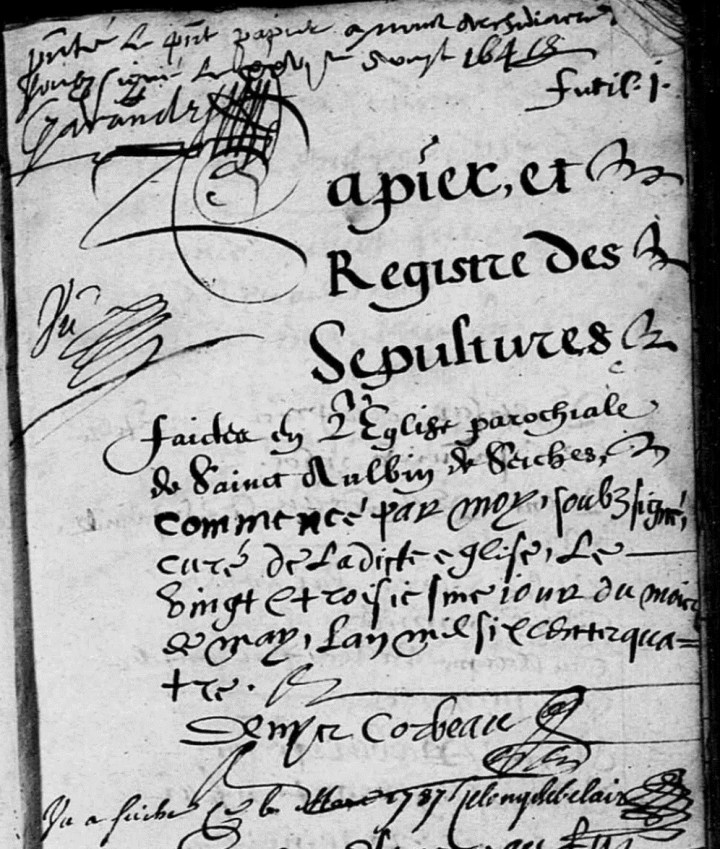 le papier a nous Archidiacre
soubz signé le Aoust 164
Garande
fueil. j.
Papier, et
Registre des
Sepultures
Veu
faictes en L'Eglise parochiale
de Sainct Aulbin de Seiches,
commencé par moy, soubzsigné,
curé de Ladicte eglise, Le
vingt et troisiesme iour du mois
de may, Lan mil six cents qua=
tre.
Corbeau
Vu a seiche le 1787